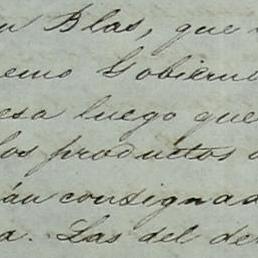 n Blas, que
emo Gobierno
esa luego que
los productos
án consignad
a. Las del de